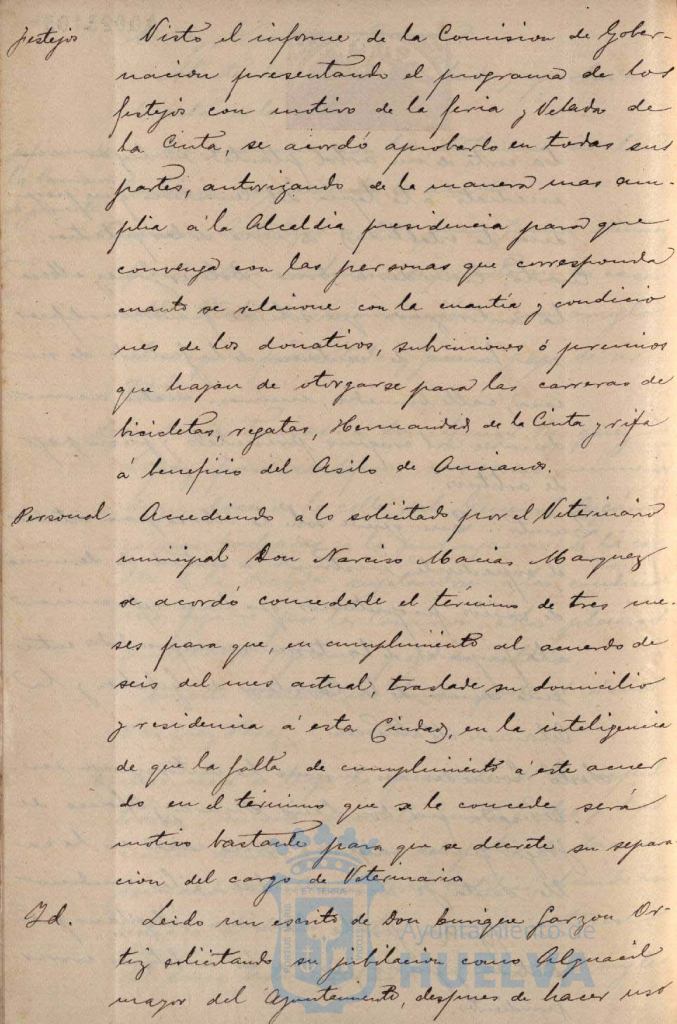 Festejos Visto el informe de la Comision de Gober-
nacion presentando el programa de los
festejos con motivo de la feria y Velada de
la Cinta, se acordó aprobarlo en todas sus
partes, autorizando de la manera mas am-
plia á la Alcaldia presidencia para que
convenga con las personas que corresponda
cuanto se relacione con la cuantía y condicio
nes de los donativos, subvenciones ó premios
que hayan de otorgarse para las carreras de
bicicletas, regatas, Hermandad de la Cinta y rifa
á beneficio del Asilo de Ancianos.
Personal Accediendo á lo solicitado por el Veterinario
municipal Don Narciso Macias Marquez
se acordó concederle el término de tres me-
ses para que, en cumplimiento al acuerdo de
seis del mes actual, traslade su domicilio
y residencia á esta Ciudad, en la inteligencia
de que la falta de cumplimiento á este acuer
do en el término que se le concede será
motivo bastante para que se decrete su separa
cion del cargo de Veterinario
Id. Leido un escrito de Don Enrique Garzon Or-
tiz solicitando su jubilacion como Alguacil
mayor del Ayuntamiento, despues de hacer uso
Ayuntamiento de
HUELVA